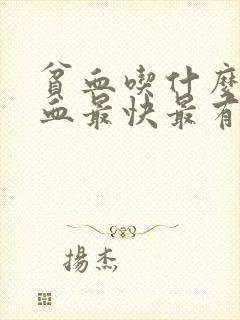 貧血喫什麼
血最快最有
揚杰